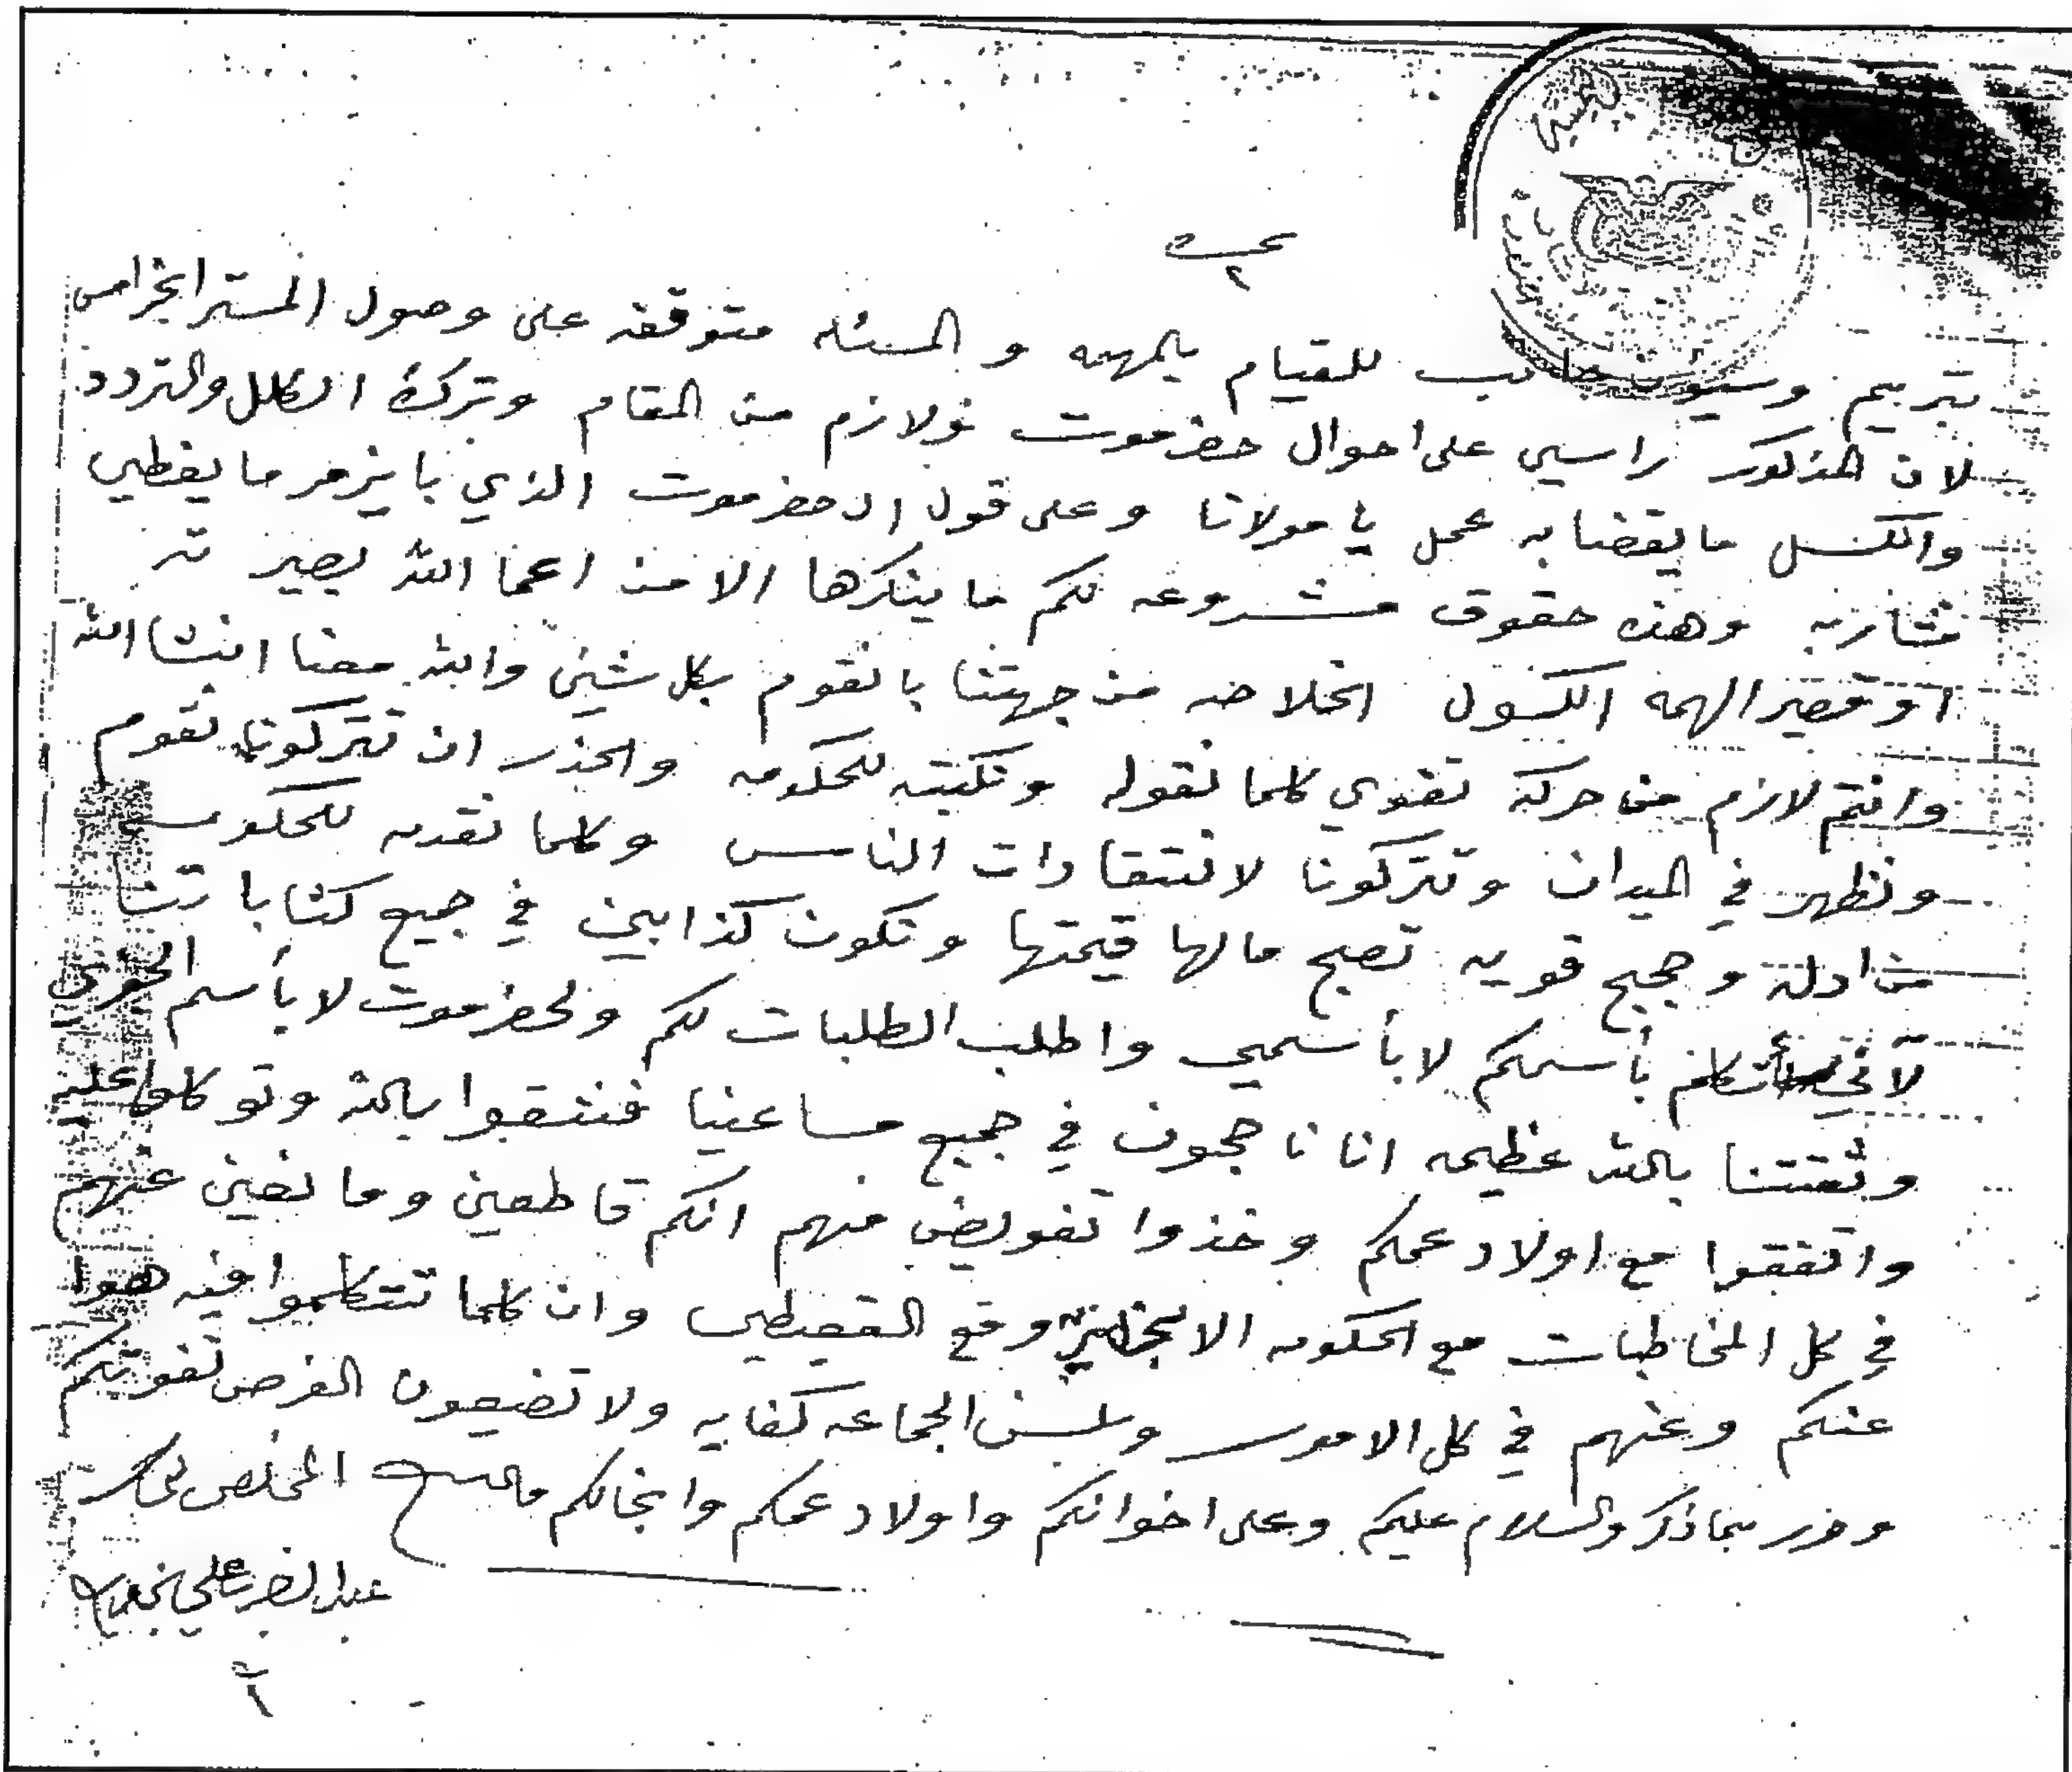 ٢
تريم وسيؤن طالب للقيام بالمهمه و المسئله متوقفه على وصول المستر انجرامس
لان المذكور راسي على احوال حضرموت فولازم من المقام وترك الكلل والتردد
والكسل ما يقضا به عمل يا مولانا وعلى قول ال حضرموت الذي با يزمر ما يغطي
شاربه وهذه حقوق مشروعه لكم ما ينكرها الا من اعما الله بصيرته
او قصير الهمه الكسول الخلاصه من جهتنا با نقوم بكل شيئ والله معنا انشا الله
وانتم لازم من حركه تقوي كلما نقوله ونكتبه للحكومه والحذر ان تتركونا نقوم
ونظهر في الميدان وتتركونا لانتقادات الناس وكلما نقدمه للحكومه
من ادله وحجج قويه تصبح مالها قيمتها ونكون كذابين في جميع كتاباتنا
لأني أتكلم بأسمكم لا بأسمي واطلب الطلبات لكم ولحضرموت لا بأسم
وثقتنا بالله عظيمه اننا ناجحون في جميع مساعينا فثقوا بالله وتوكلوا عليه
واتفقوا مع اولاد عمكم وخذوا تفويض منهم انكم قاطعين وماضين عنهم
في كل المخاطبات مع الحكومه الانجليزيه ومع القعيطي وان كلما تتكلموا فيه هوا
عنكم وعنهم في كل الامور ولسن الجماعه كفايه ولا تضيعون الفرص تفوتكم
وحرر بماذكر والسلام عليكم وعلى اخوانكم واولاد عمكم وانجالكم المخلص لكم